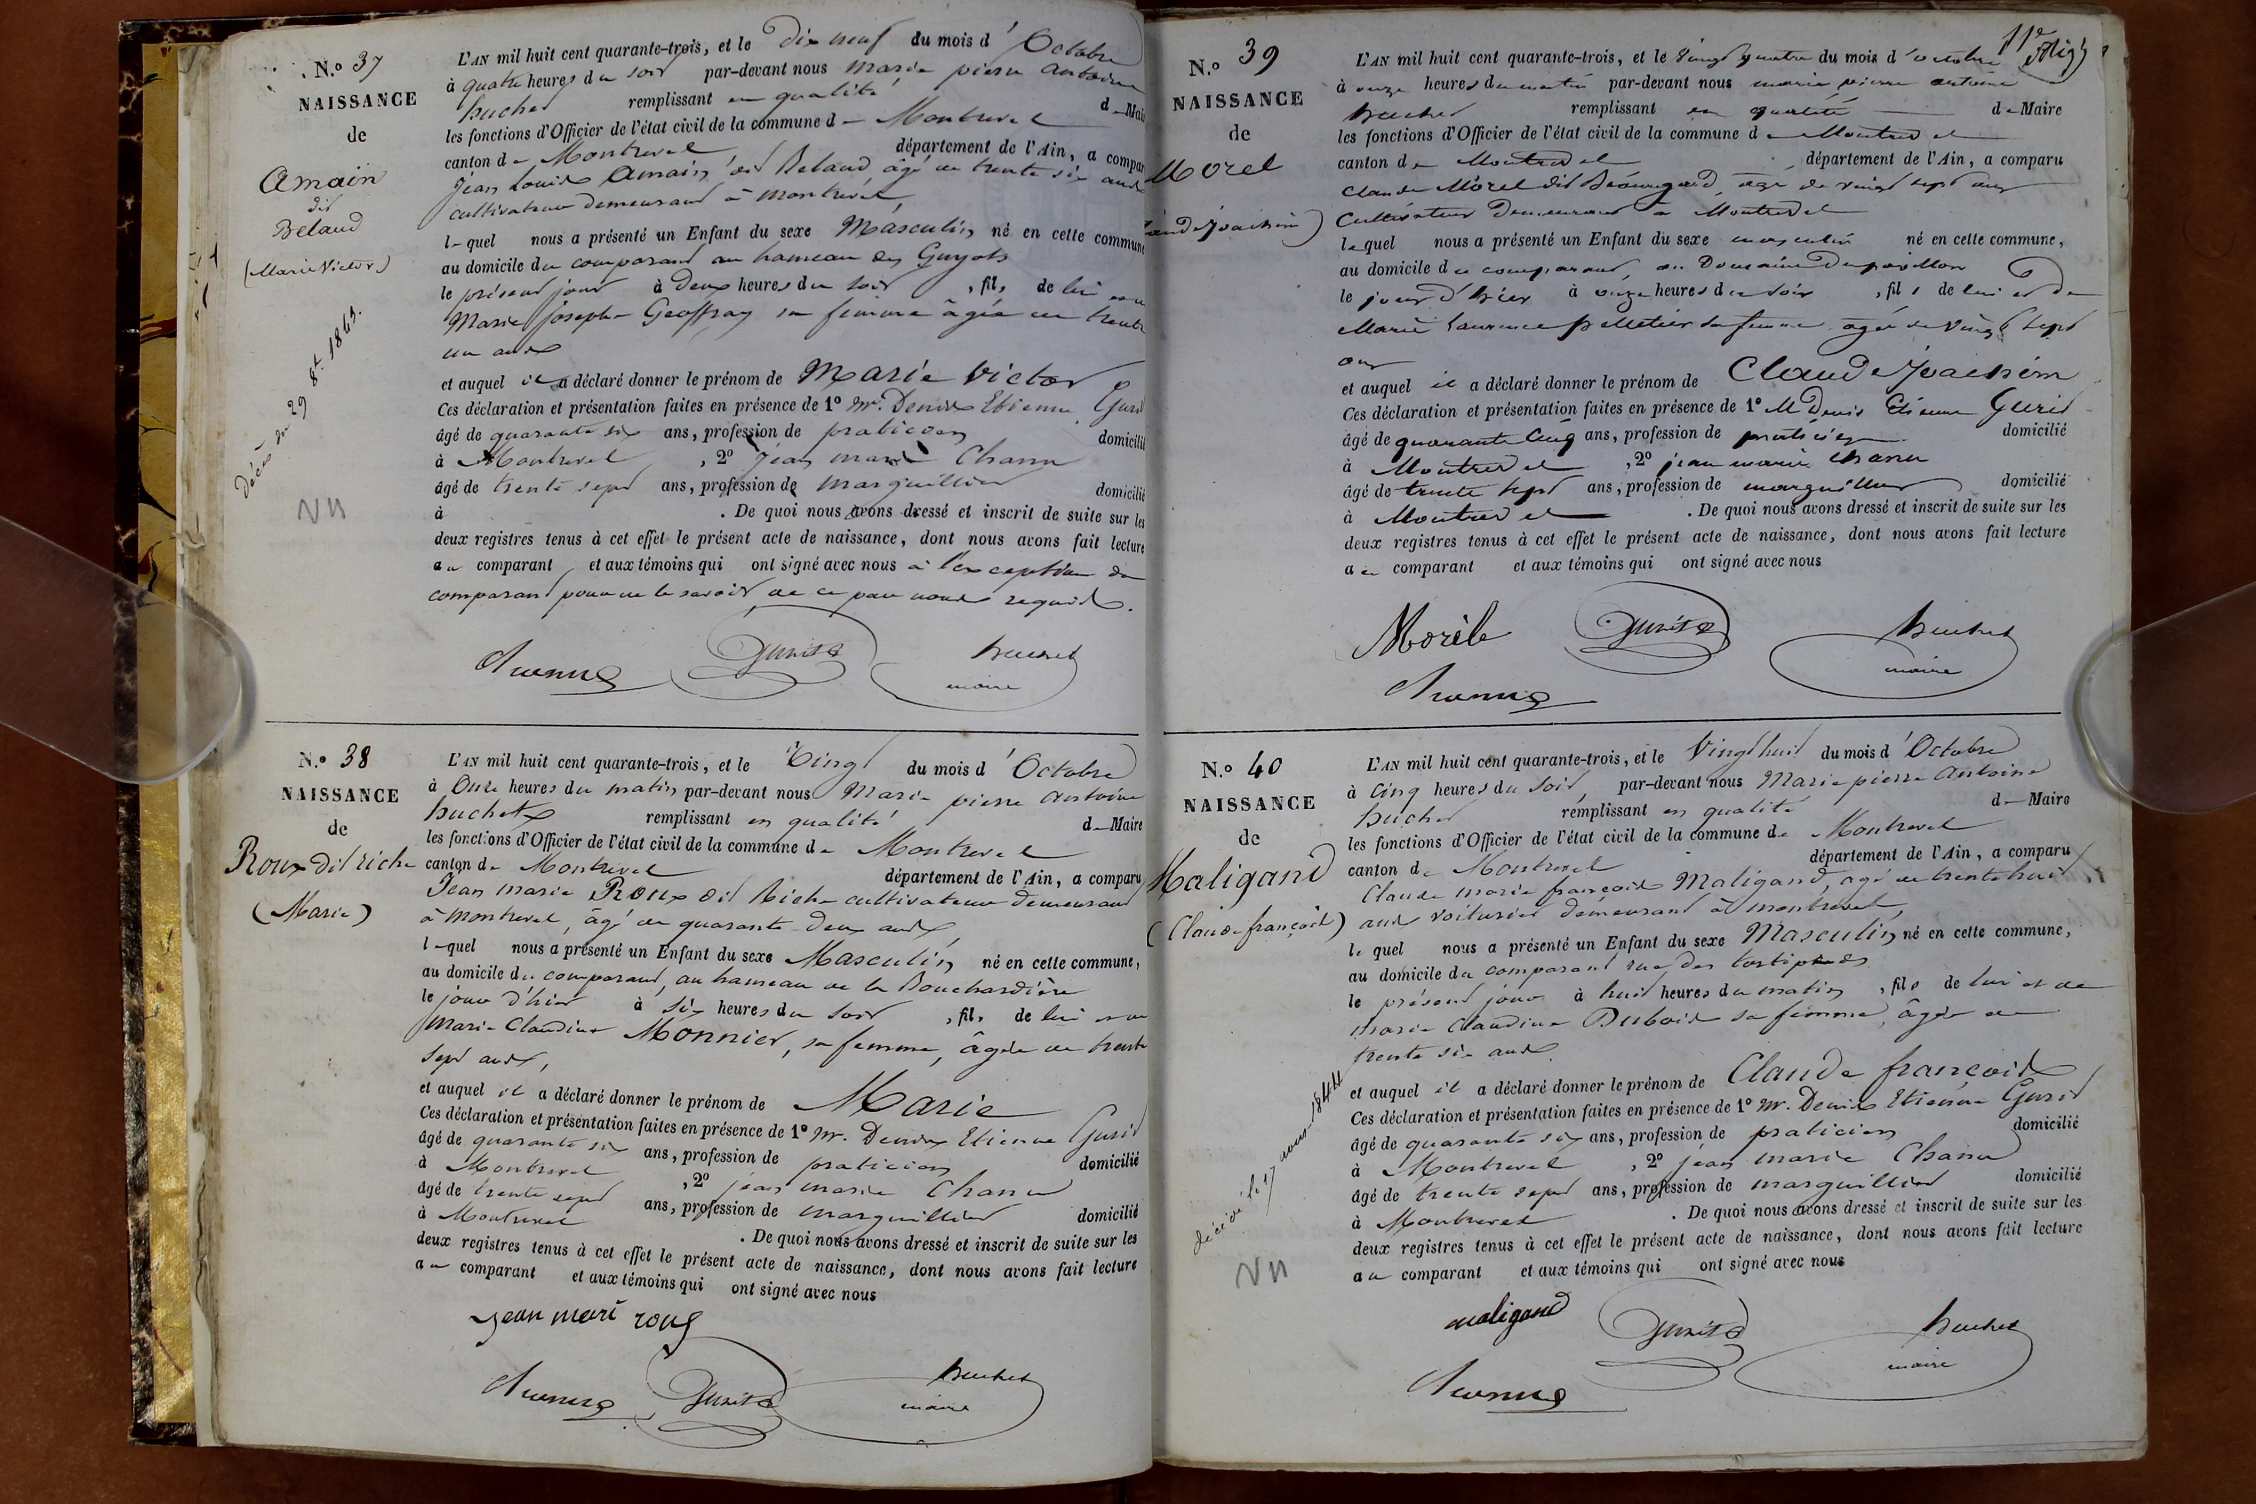 N.º 37
NAISSANCE
de
Amain
dit
Beland
(Marie Victor)
décés du 29 8bre 1843.
Vu
L'AN mil huit cent quarante-trois, et le dix neuf du mois d'Octobre
à quatre heures du soir par-devant nous Marie pierre antoine
huchet remplissant en qualité de Maire
les fonctions d'Officier de l'état civil de la commune de Montrevel
canton de Montrevel département de l'Ain, a comparu
Jean Louis Amain dit Beland, âgé de trente six ans
cultivateur demeurant à Montrevel,
lequel nous a présenté un Enfant du sexe Masculin né en cette commune
au domicile du comparant au hameau des Guyots
le présent jour à Deux heures du soir, fils de lui et de
Marie josephe Geoffray sa femme âgée de trente
un ans
et auquel il a déclaré donner le prénom de Marie Victor
Ces déclaration et présentation faites en présence de 1º Mr. Denis Etienne Gurit
âgé de quarante six ans, profession de praticien domicilié
à Montrevel, 2º jean marie Chanu
âgé de trente sept ans, profession de marguillier domicilié
à . De quoi nous avons dressé et inscrit de suite sur les
deux registres tenus à cet effet le présent acte de naissance, dont nous avons fait lecture
au comparant et aux témoins qui ont signé avec nous à l'exception du
comparant pour ne le savoir de ce par nous requis.
Gurit huchet
maire
N.º 38
NAISSANCE
de
Roux dit riche
(Marie)
L'AN mil huit cent quarante-trois, et le Vingt du mois d'Octobre
à Onze heures du matin par-devant nous Marie pierre antoine
huchet remplissant en qualité de Maire
les fonctions d'Officier de l'état civil de la commune de Montrevel
canton de Montrevel département de l'Ain, a comparu
Jean marie Roux dit Riche cultivateur demeurant
à Montrevel, âgé de quarante deux ans,
lequel nous a présenté un Enfant du sexe Masculin né en cette commune,
au domicile du comparant, au hameau de la Bouchardière
le jour d'hier à six heures du soir, fils de lui et de
Marie Claudine Monnier, sa femme, âgée de trente
sept ans,
et auquel il a déclaré donner le prénom de Marie
Ces déclaration et présentation faites en présence de 1º Mr. Denis Etienne Gurit
âgé de quarante six ans, profession de praticien domicilié
à Montrevel, 2º jean marie Chanu
âgé de trente sept ans, profession de marguillier domicilié
à Montrevel . De quoi nous avons dressé et inscrit de suite sur les
deux registres tenus à cet effet le présent acte de naissance, dont nous avons fait lecture
au comparant et aux témoins qui ont signé avec nous
jean mari roux
Gurit huchet
maire
11e
N.º 39
NAISSANCE
de
Morel
(Claude Joachim)
L'AN mil huit cent quarante-trois, et le Vingt quatre du mois d'octobre
à onze heures du matin par-devant nous marie pierre antoine
huchet remplissant en qualité de Maire
les fonctions d'Officier de l'état civil de la commune de Montrevel
canton de Montrevel département de l'Ain, a comparu
Claude Morel dit Beauregard, âgé de vingt sept ans
Cultivateur Demeurant à Montrevel
lequel nous a présenté un Enfant du sexe masculin né en cette commune,
au domicile du comparant, au Domaine Dupavillon
le jour d'hier à onze heures du soir, fils de lui et de
Marie Laurence pelletier sa femme âgée de Vingt sept
ans
et auquel il a déclaré donner le prénom de Claude Joachim
Ces déclaration et présentation faites en présence de 1º M Denis Etienne Gurit
âgé de quarante cinq ans, profession de praticien domicilié
à Montrevel, 2º jean marie chanu
âgé de trente sept ans, profession de marguillier domicilié
à Montrevel . De quoi nous avons dressé et inscrit de suite sur les
deux registres tenus à cet effet le présent acte de naissance, dont nous avons fait lecture
au comparant et aux témoins qui ont signé avec nous
Gurit huchet
maire
N.º 40
NAISSANCE
de
Maligand
(Claude françois)
décédé le 17 aout 1844
Vu
L'AN mil huit cent quarante-trois, et le Vingt huit du mois d'Octobre
à Cinq heures du soir, par-devant nous Marie pierre antoine
huchet remplissant en qualité de Maire
les fonctions d'Officier de l'état civil de la commune de Montrevel
canton de Montrevel département de l'Ain, a comparu
Claude marie françois Maligand, âgé de trente huit
ans voiturier demeurant à montrevel,
lequel nous a présenté un Enfant du sexe Masculin, né en cette commune,
au domicile du comparant rue des
le présent jour à huit heures du matin, fils de lui et de
marie Claudine Dubois sa femme, âgée de
trente six ans.
et auquel il a déclaré donner le prénom de Claude françois
Ces déclaration et présentation faites en présence de 1º Mr. Denis Etienne Gurit
âgé de quarante six ans, profession de praticien domicilié
à Montrevel, 2º jean marie Chanu
âgé de trente sept ans, profession de marguillier domicilié
à Montrevel . De quoi nous avons dressé et inscrit de suite sur les
deux registres tenus à cet effet le présent acte de naissance, dont nous avons fait lecture
au comparant et aux témoins qui ont signé avec nous
maligand Gurit huchet
maire